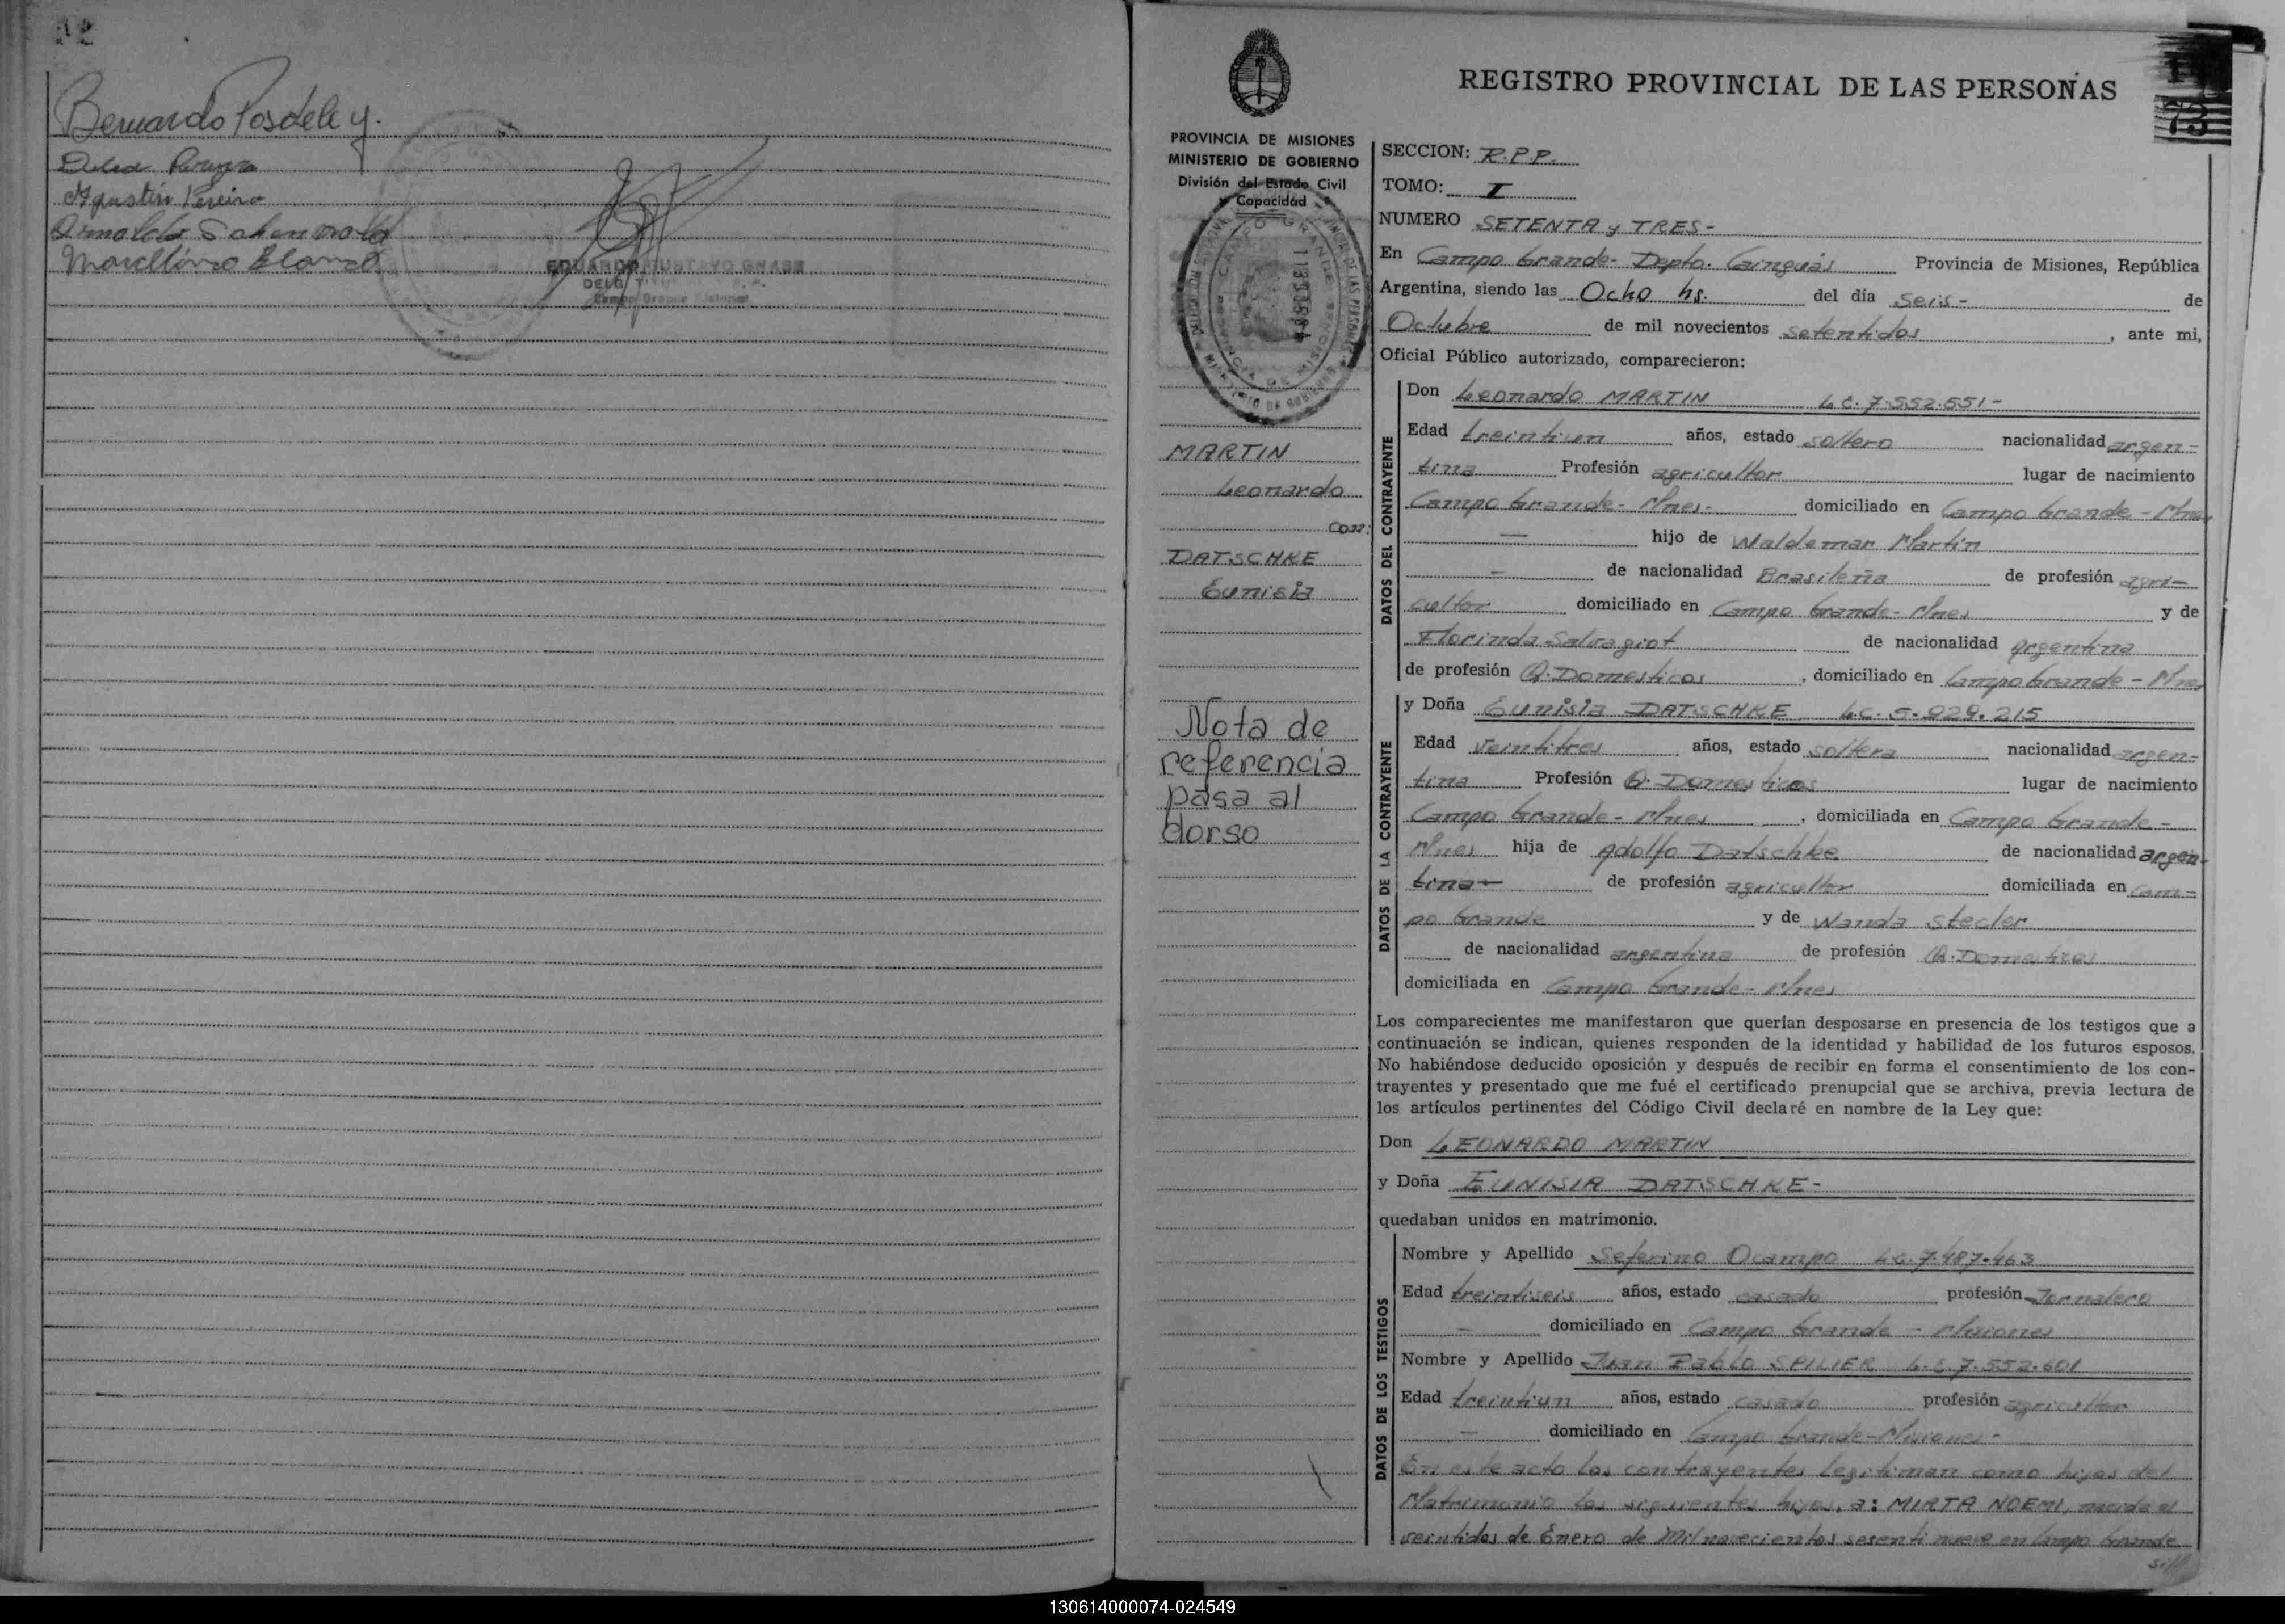 Bernardo Posdeley.
Agustin Pereira
Arnaldo
Marcelino
EDUARDO GUSTAVO
Campo Grande Misiones
REGISTRO PROVINCIAL DE LAS PERSONAS
73
PROVINCIA DE MISIONES
MINISTERIO DE GOBIERNO
División del Estado Civil
y Capacidad
SECCION: R.P.P.
TOMO: I
NUMERO SETENTA y TRES-
En Campo Grande- Depto. Cainguás Provincia de Misiones, República
Argentina, siendo las Ocho hs. del día seis- de
Octubre de mil novecientos setentidos, ante mi,
Oficial Público autorizado, comparecieron:
MARTIN
Leonardo
con:
DATSCHKE
Eunisia
Nota de
referencia
pasa al
dorso
DATOS DEL CONTRAYENTE
Don Leonardo MARTIN L.C. 7.552.551-
Edad treintiun años, estado soltero nacionalidad argen-
tina Profesión agricultor lugar de nacimiento
Campo Grande- Mnes- domiciliado en Campo Grande - Mnes
- hijo de Waldemar Martin
- de nacionalidad Brasileña de profesión agri-
cultor domiciliado en Campo Grande- Mnes y de
Florinda Salvagiot de nacionalidad argentina
de profesión Q. Domesticos, domiciliado en Campo Grande - Mnes
DATOS DE LA CONTRAYENTE
y Doña Eunisia DATSCHKE L.C. 5.929.215
Edad veintitres años, estado soltera nacionalidad argen-
tina Profesión Q. Domesticos lugar de nacimiento
Campo Grande- Mnes, domiciliada en Campo Grande-
Mnes hija de Adolfo Datschke de nacionalidad argen-
tina- de profesión agricultor domiciliada en Cam-
po Grande y de Wanda Stecler
de nacionalidad argentina de profesión Q. Domesticos
domiciliada en Campo Grande- Mnes
Los comparecientes me manifestaron que querían desposarse en presencia de los testigos que a
continuación se indican, quienes responden de la identidad y habilidad de los futuros esposos.
No habiéndose deducido oposición y después de recibir en forma el consentimiento de los con-
trayentes y presentado que me fué el certificado prenupcial que se archiva, previa lectura de
los artículos pertinentes del Código Civil declaré en nombre de la Ley que:
Don LEONARDO MARTIN
y Doña EUNISIA DATSCHKE-
quedaban unidos en matrimonio.
DATOS DE LOS TESTIGOS
Nombre y Apellido Seferino Ocampo L.C. 7.487.463
Edad treintiseis años, estado casado profesión Jornalero
- domiciliado en Campo Grande - Misiones
Nombre y Apellido Juan Pablo SPILIER L.E. 7.552.601
Edad treintiun años, estado casado profesión agricultor
- domiciliado en Campo Grande-Misiones-
En este acto los contrayentes legitiman como hijos del
Matrimonio los siguientes hijos, a: MIRTA NOEMI, nacida el
veintidos de Enero de Mil novecientos sesenti nueve en Campo Grande
130614000074-024549